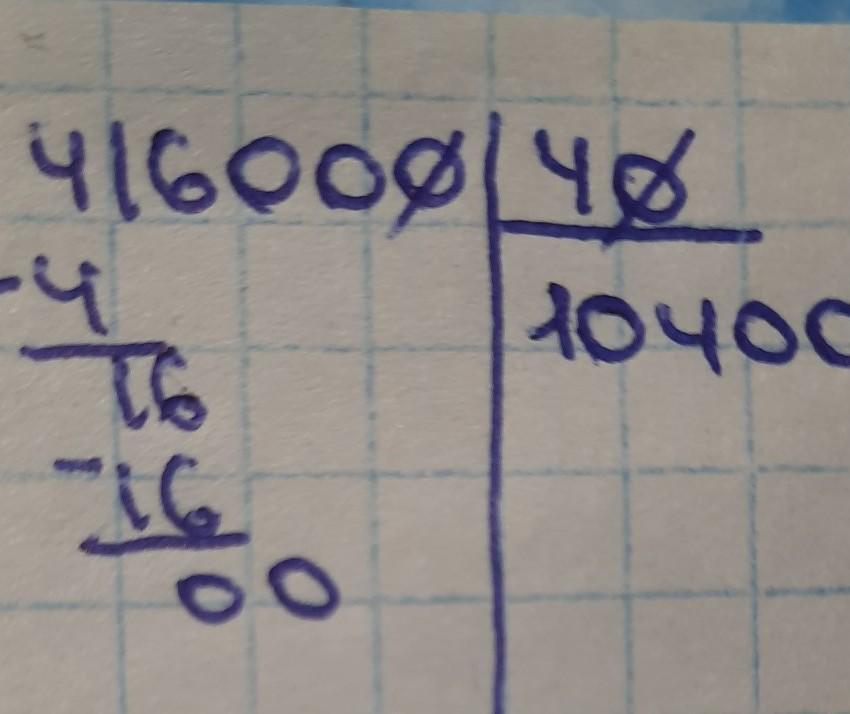 416000 40
-4 10400
16
-16
00